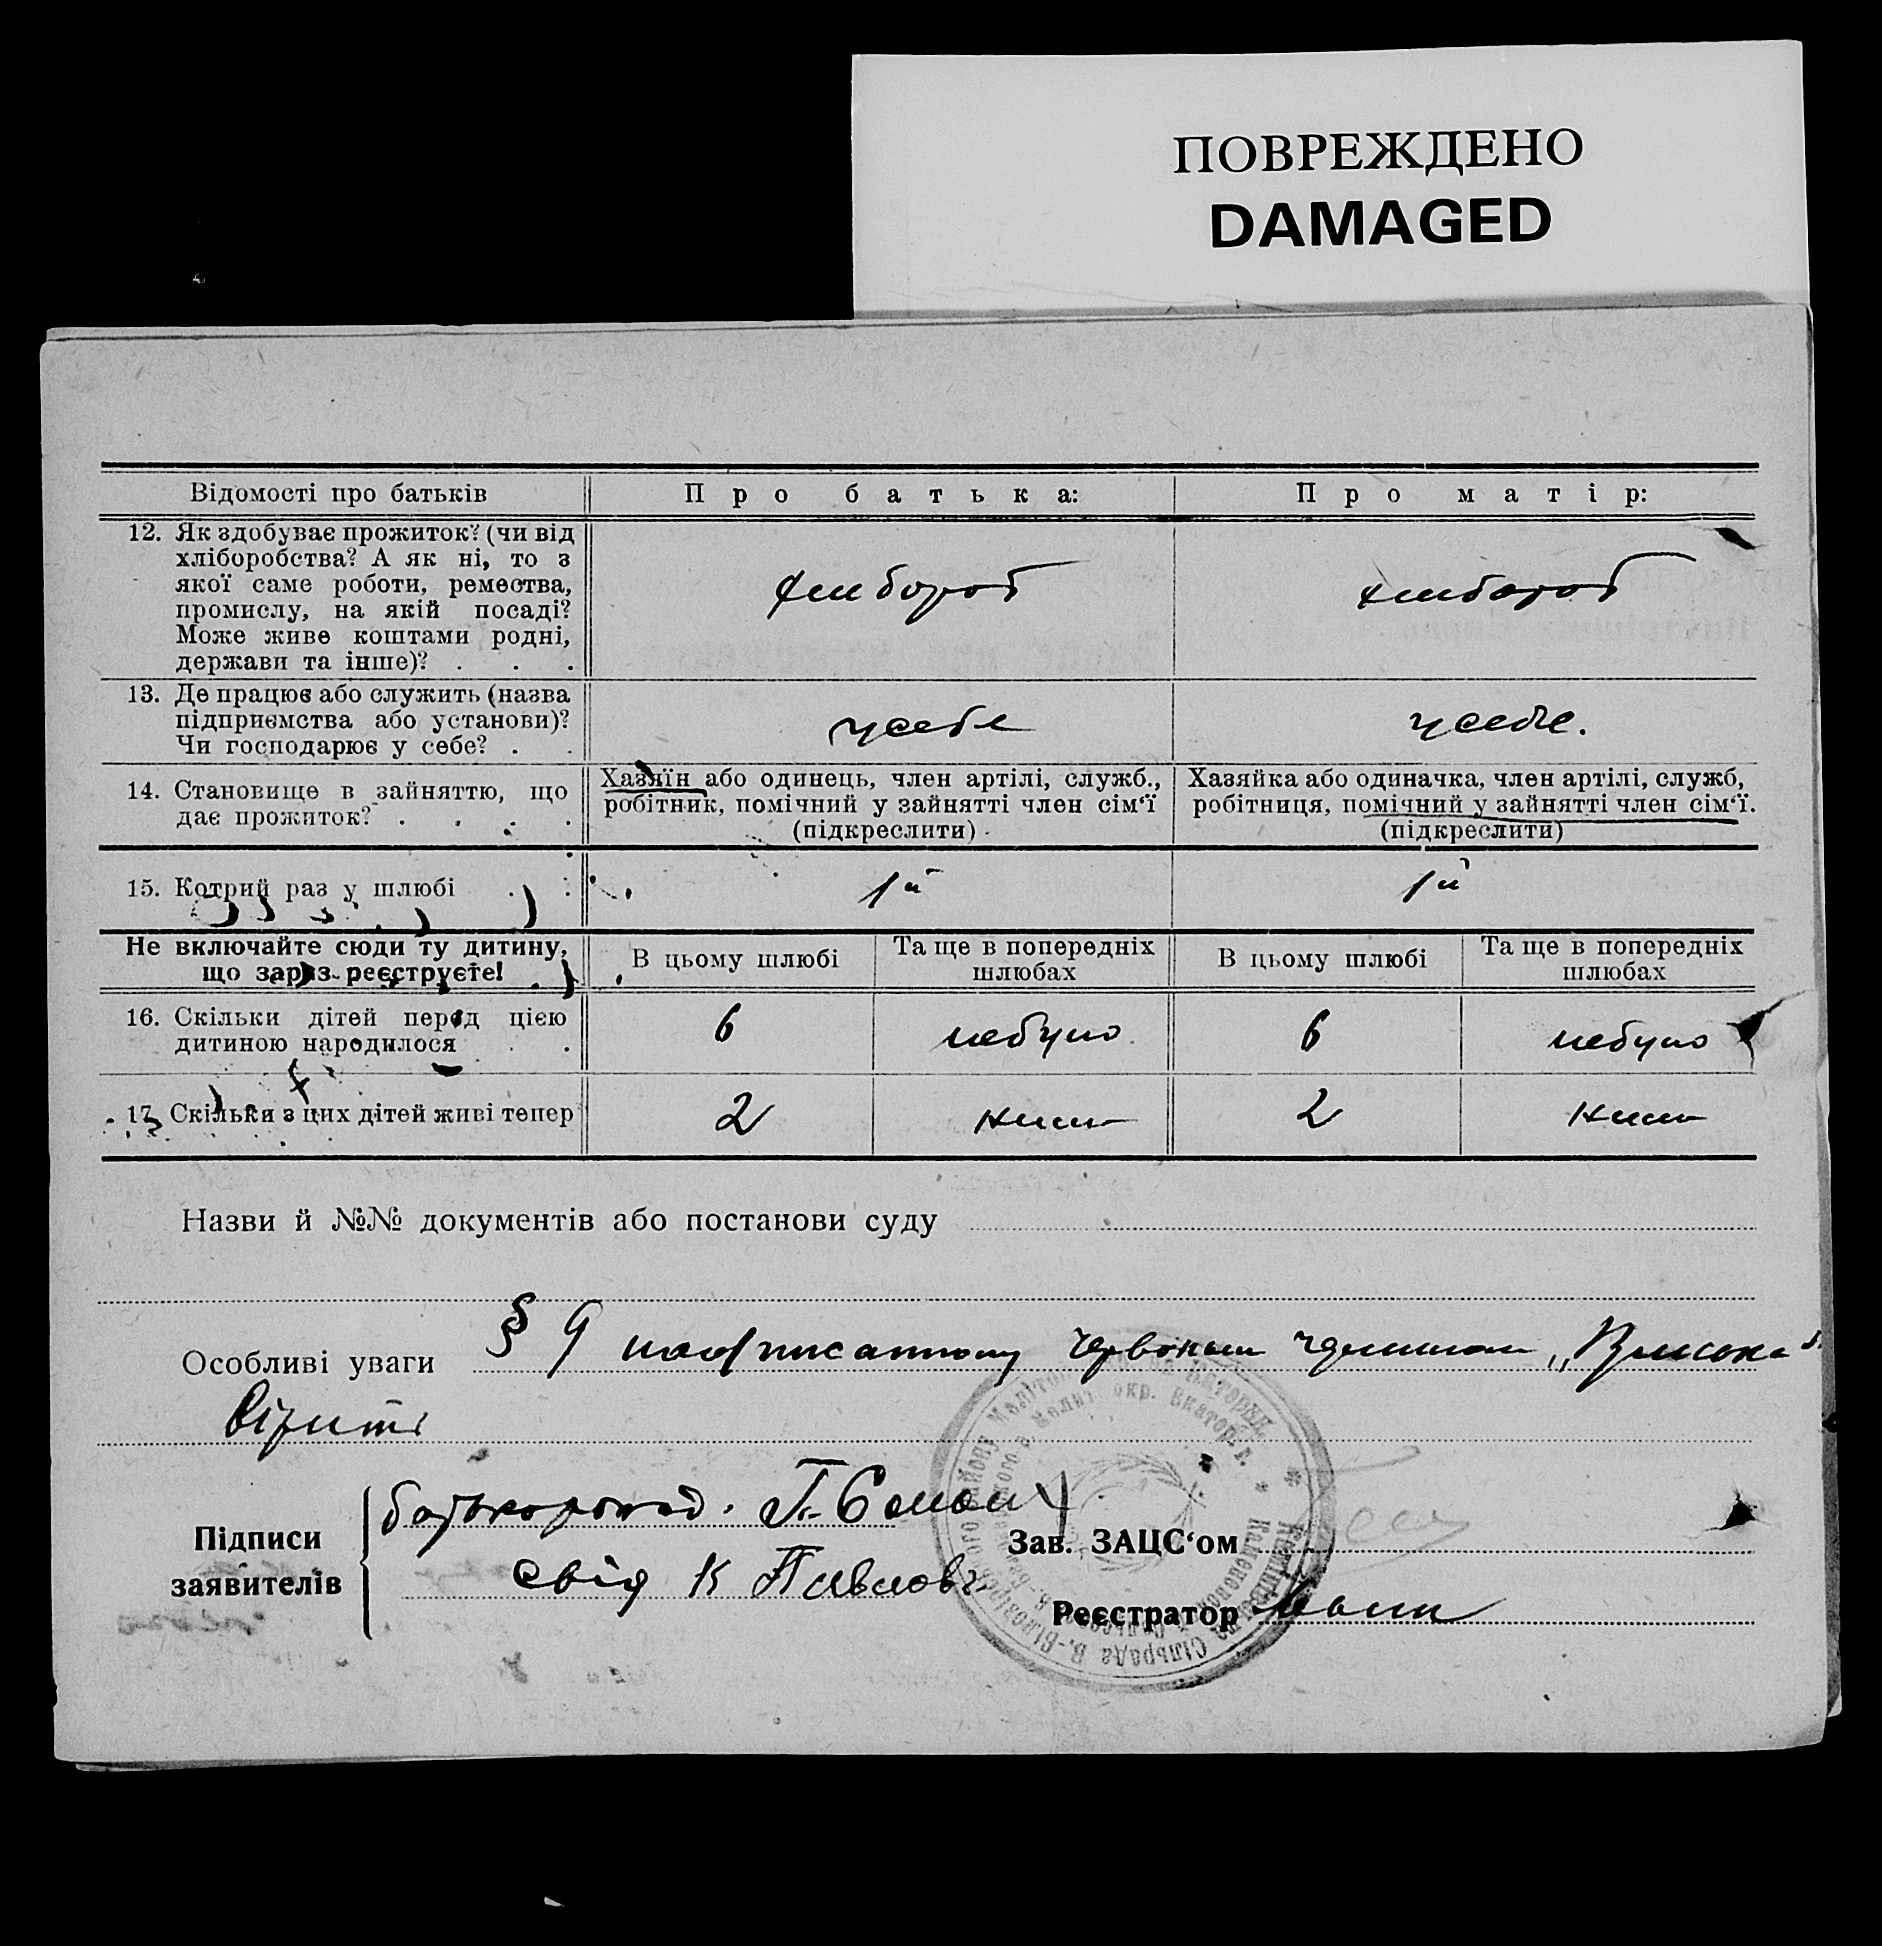 ПОВРЕЖДЕНО
DAMAGED
Відомості про батьків
Про батька:
Про матір:
12. Як здобуває прожиток? (чи від
хліборобства? А як ні, то з
якої саме роботи, ремества,
промислу, на якій посаді?
Може живе коштами родні,
держави та інше)? . . .
хлибороб
хлибороб
13. Де працює або служить (назва
підприємства або установи)?
Чи господарює у себе? . .
у себе
у себе.
14. Становище в зайняттю, що
дає прожиток? . . . .
Хазяїн або одинець, член артілі, служб.,
робітник, помічний у зайнятті член сім‘ї
(підкреслити)
Хазяйка або одиначка, член артілі, служб,
робітниця, помічний у зайнятті член сім‘ї.
(підкреслити)
15. Котрий раз у шлюбі . .
1й
1й
Не включайте сюди ту дитину,
що зараз реєструєте!
В цьому шлюбі
Та ще в попередніх
шлюбах
В цьому шлюбі
Та ще в попередніх
шлюбах
16. Скільки дітей перед цією
дитиною народилося . .
6
небуло
6
небуло
17. Скільки з цих дітей живі тепер
2
2
Назви й №№ документів або постанови суду
Особливі уваги § 9 червоным чернилом
Вірити
Підписи
заявителів
П. Семон
свід К Павлов
Зав. ЗАЦС‘ом
Реєстратор